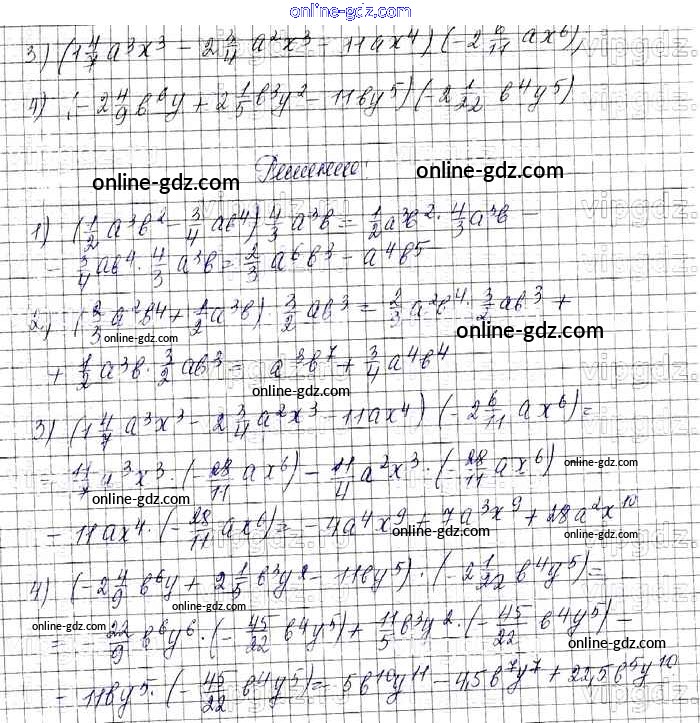 online-gdz.com
3) (1 4/7 a³x³ − 2 3/4 a²x³ − 11ax⁴)(−2 6/11 ax⁶);
4) (−2 4/9 b⁶y + 2 1/5 b³y² − 11by⁵)(−2 1/22 b⁴y⁵)
Решение:
online-gdz.com online-gdz.com
1) (1/2 a³b² − 3/4 ab⁴) 4/3 a³b = 1/2 a³b² · 4/3 a³b −
− 3/4 ab⁴ · 4/3 a³b = 2/3 a⁶b³ − a⁴b⁵
online-gdz.com
2) (2/3 a²b⁴ + 1/2 a³b) · 3/2 ab³ = 2/3 a²b⁴ · 3/2 ab³ +
online-gdz.com online-gdz.com
+ 1/2 a³b · 3/2 ab³ = a³b⁷ + 3/4 a⁴b⁴
online-gdz.com
3) (1 4/7 a³x³ − 2 3/4 a²x³ − 11ax⁴)(−2 6/11 ax⁶) =
= 11/7 a³x³ · (−28/11 ax⁶) − 11/4 a²x³ · (−28/11 ax⁶)
online-gdz.com
online-gdz.com
− 11ax⁴ · (−28/11 ax⁶) = −4a⁴x⁹ + 7a³x⁹ + 28a²x¹⁰
online-gdz.com
4) (−2 4/9 b⁶y + 2 1/5 b³y² − 11by⁵) · (−2 1/22 b⁴y⁵) =
online-gdz.com
online-gdz.com
= −22/9 b⁶y⁶ · (−45/22 b⁴y⁵) + 11/5 b³y² · (−45/22 b⁴y⁵) −
online-gdz.com
− 11by⁵ · (−45/22 b⁴y⁵) = 5b¹⁰y¹¹ − 4,5b⁷y⁷ + 22,5b⁵y¹⁰
online-gdz.com